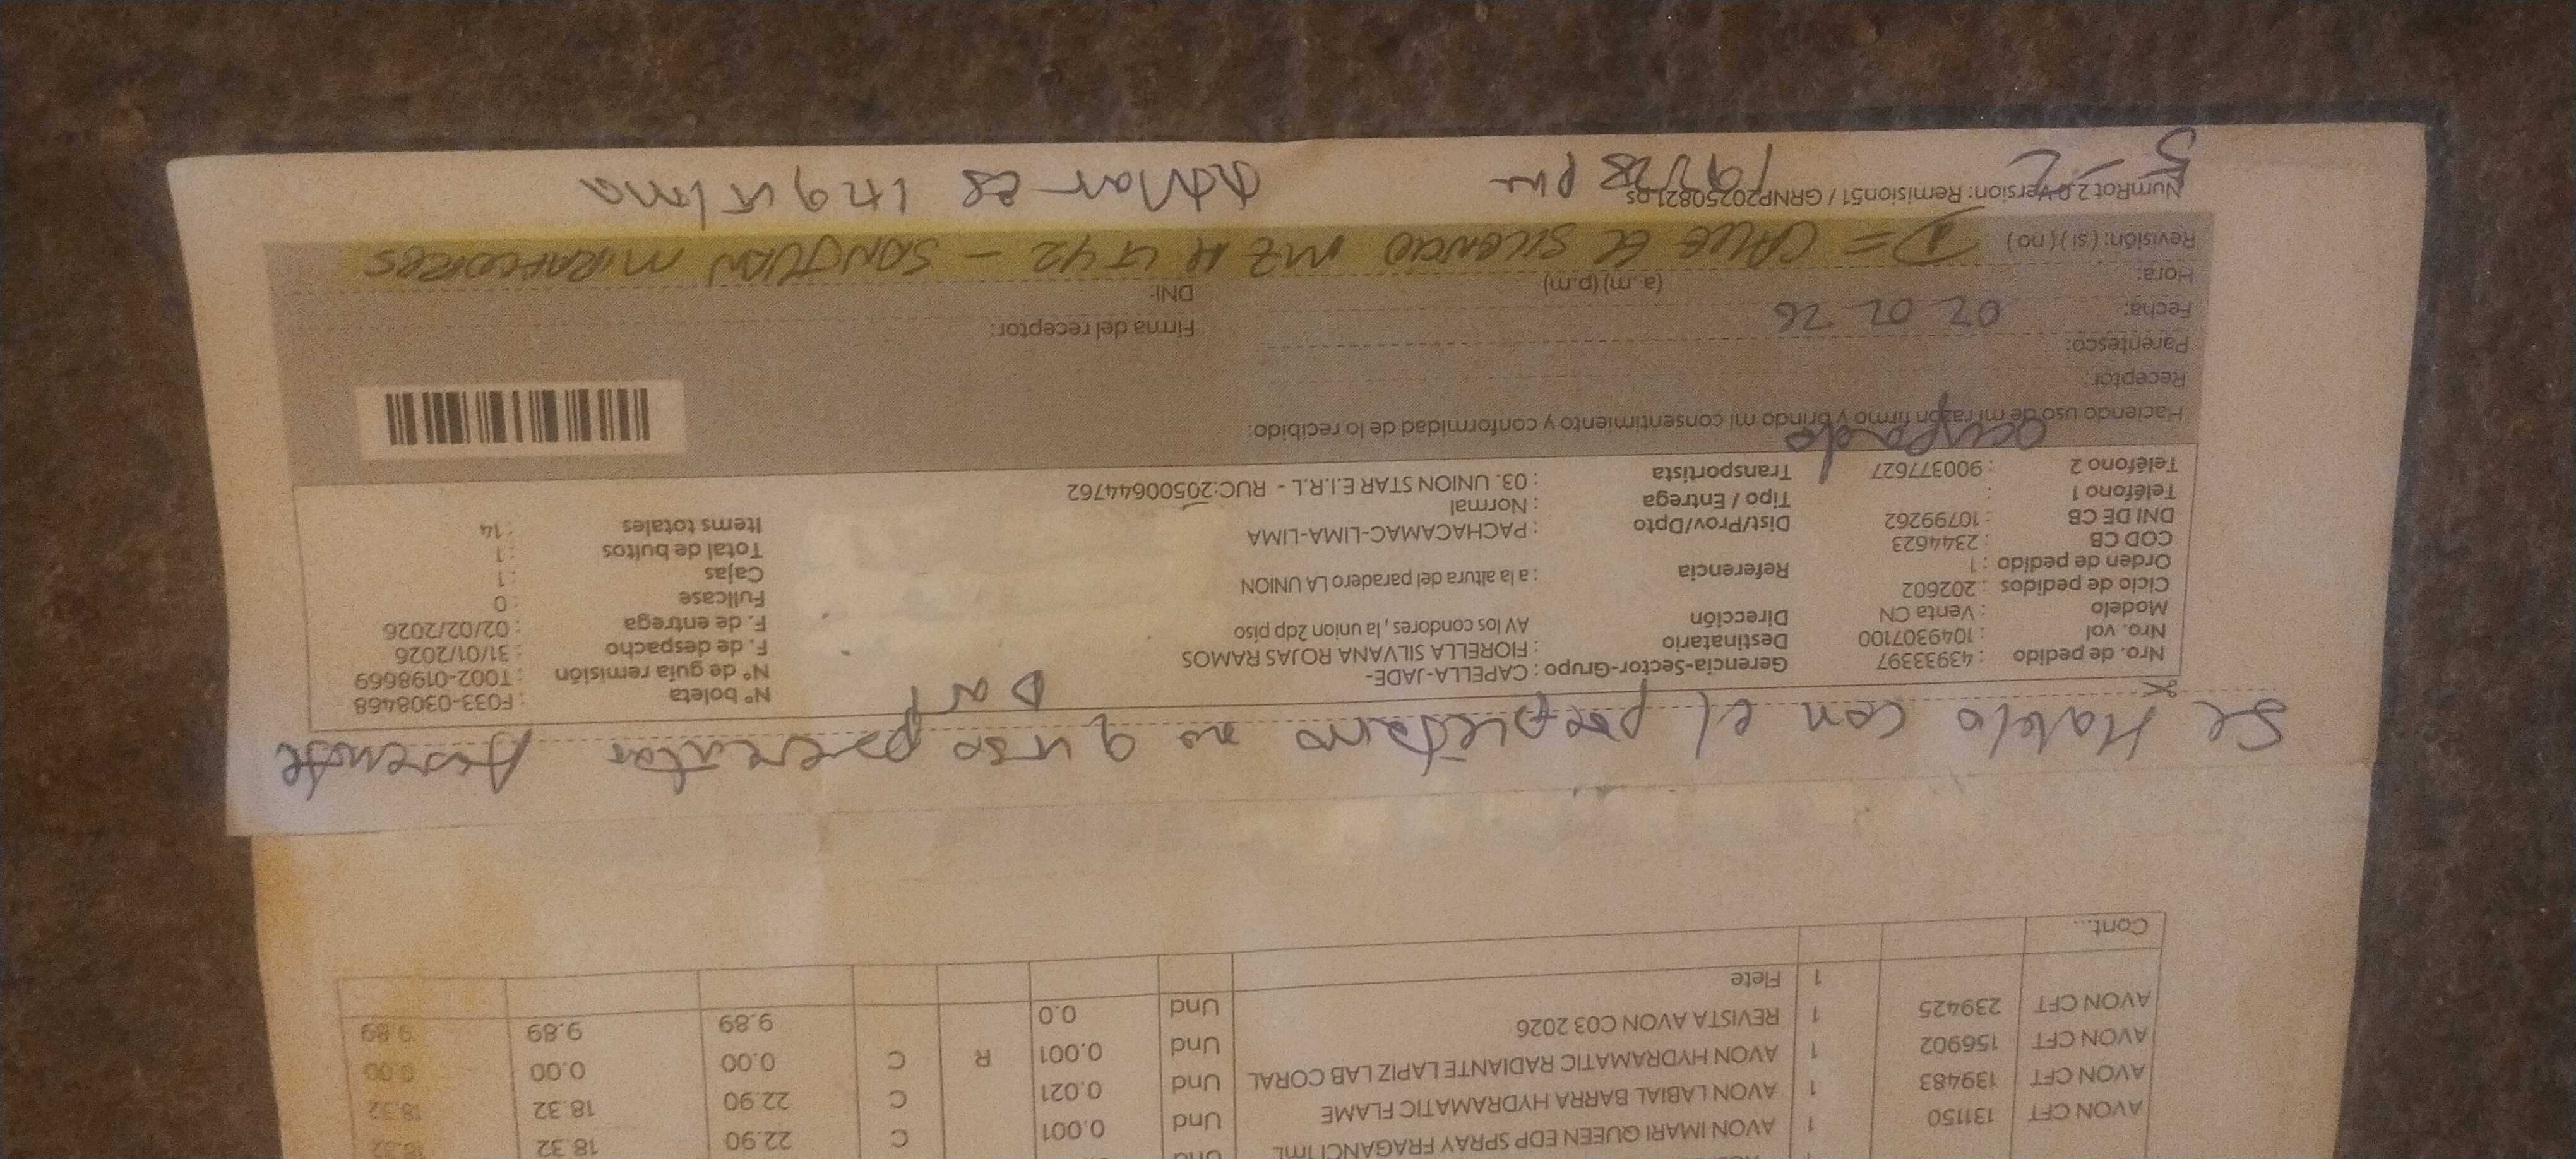 AVON CFT 131150 1 AVON IMARI QUEEN EDP SPRAY FRAGANCI 1ML Und 0.001 C 22.90 18.32 18.32
AVON CFT 139483 1 AVON LABIAL BARRA HYDRAMATIC FLAME Und 0.021 C 22.90 18.32 18.32
AVON CFT 156902 1 AVON HYDRAMATIC RADIANTE LAPIZ LAB CORAL Und 0.001 R C 0.00 0.00 0.00
AVON CFT 239425 1 REVISTA AVON C03 2026 Und 0.0 9.89 9.89 9.89
1 Flete
Cont....
Se Hablo con el propietario no quiso
Dar
Nro. de pedido : 43933397
Nro. vol : 1049307100
Modelo : Venta CN
Ciclo de pedidos : 202602
Orden de pedido : 1
COD CB : 2344623
DNI DE CB : 10799262
Teléfono 1 :
Teléfono 2 : 900377627
Gerencia-Sector-Grupo : CAPELLA-JADE-
Destinatario : FIORELLA SILVANA ROJAS RAMOS
Dirección AV los condores , la union 2dp piso
Referencia : a la altura del paradero LA UNION
Dist/Prov/Dpto : PACHACAMAC-LIMA-LIMA
Tipo / Entrega : Normal
Transportista : 03. UNION STAR E.I.R.L - RUC:20500644762
N° boleta : F033-0308468
N° de guía remisión : T002-0198669
F. de despacho : 31/01/2026
F. de entrega : 02/02/2026
Fullcase : 0
Cajas : 1
Total de bultos : 1
Items totales : 14
ocupado
Haciendo uso de mi razón firmo y brindo mi consentimiento y conformidad de lo recibido:
Receptor:
Parentesco:
Fecha: 02 02 26
Firma del receptor:
Hora: (a. m) (p.m)
DNI:
Revisión: ( si ) ( no )
D = CALLE EL SILENCIO MZ H LT 42 - SAN JUAN MIRAFLORES
NumRot 2.0 Version: Remision51 / GRNP20250821.ps
pm
es inquilina